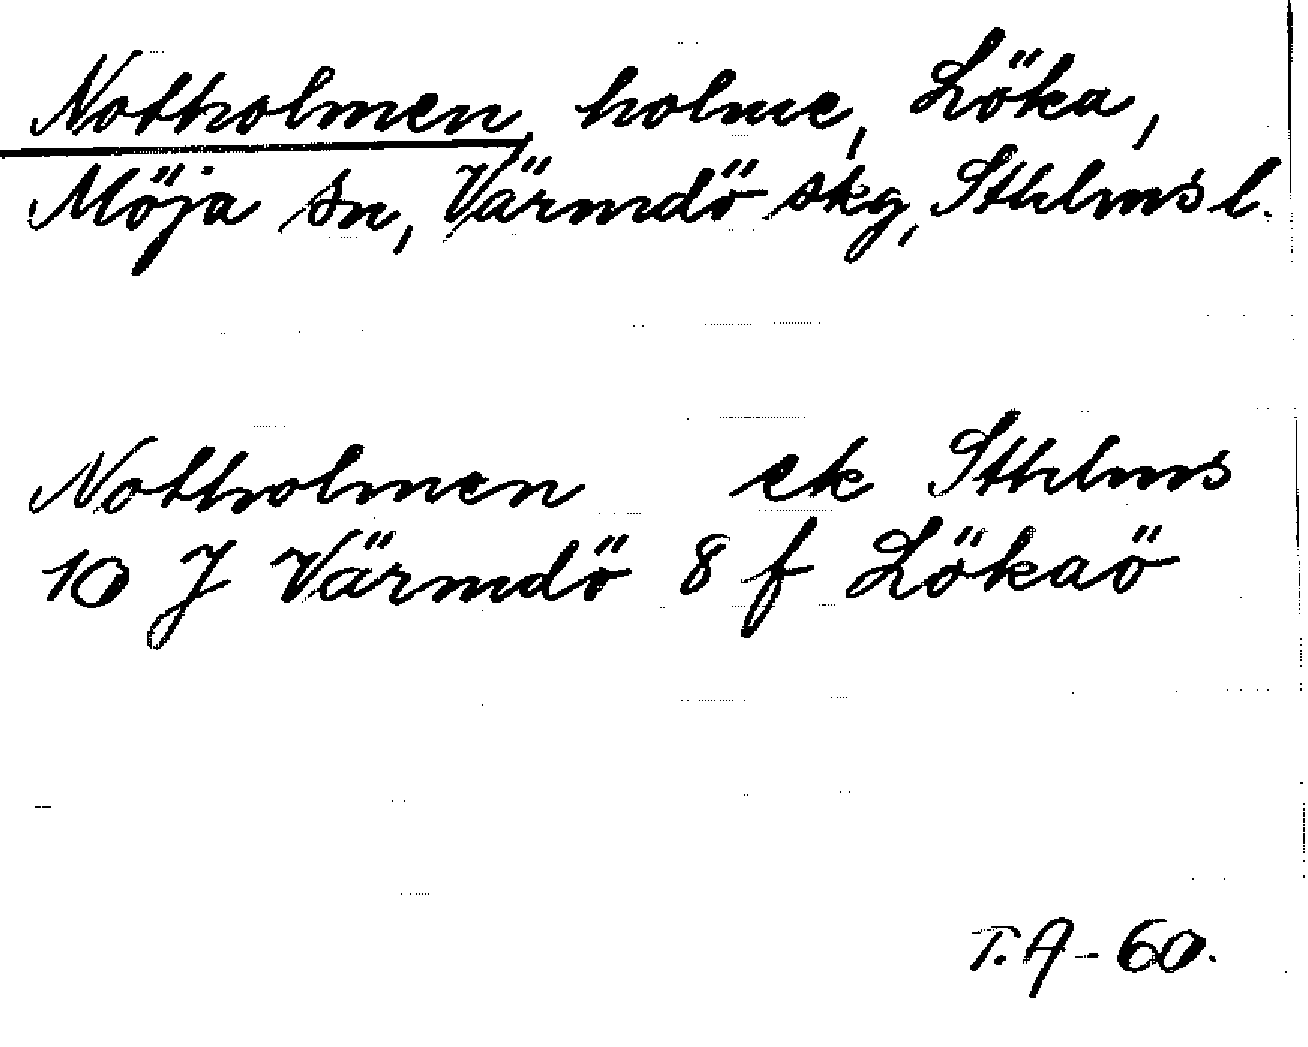 Notholmen, holme, Löka,
Möja sn, Värmdö skg, Sthlms l.
Notholmen ek Sthlms
10 J Värmdö 8 f Lökaö
T.A-60.